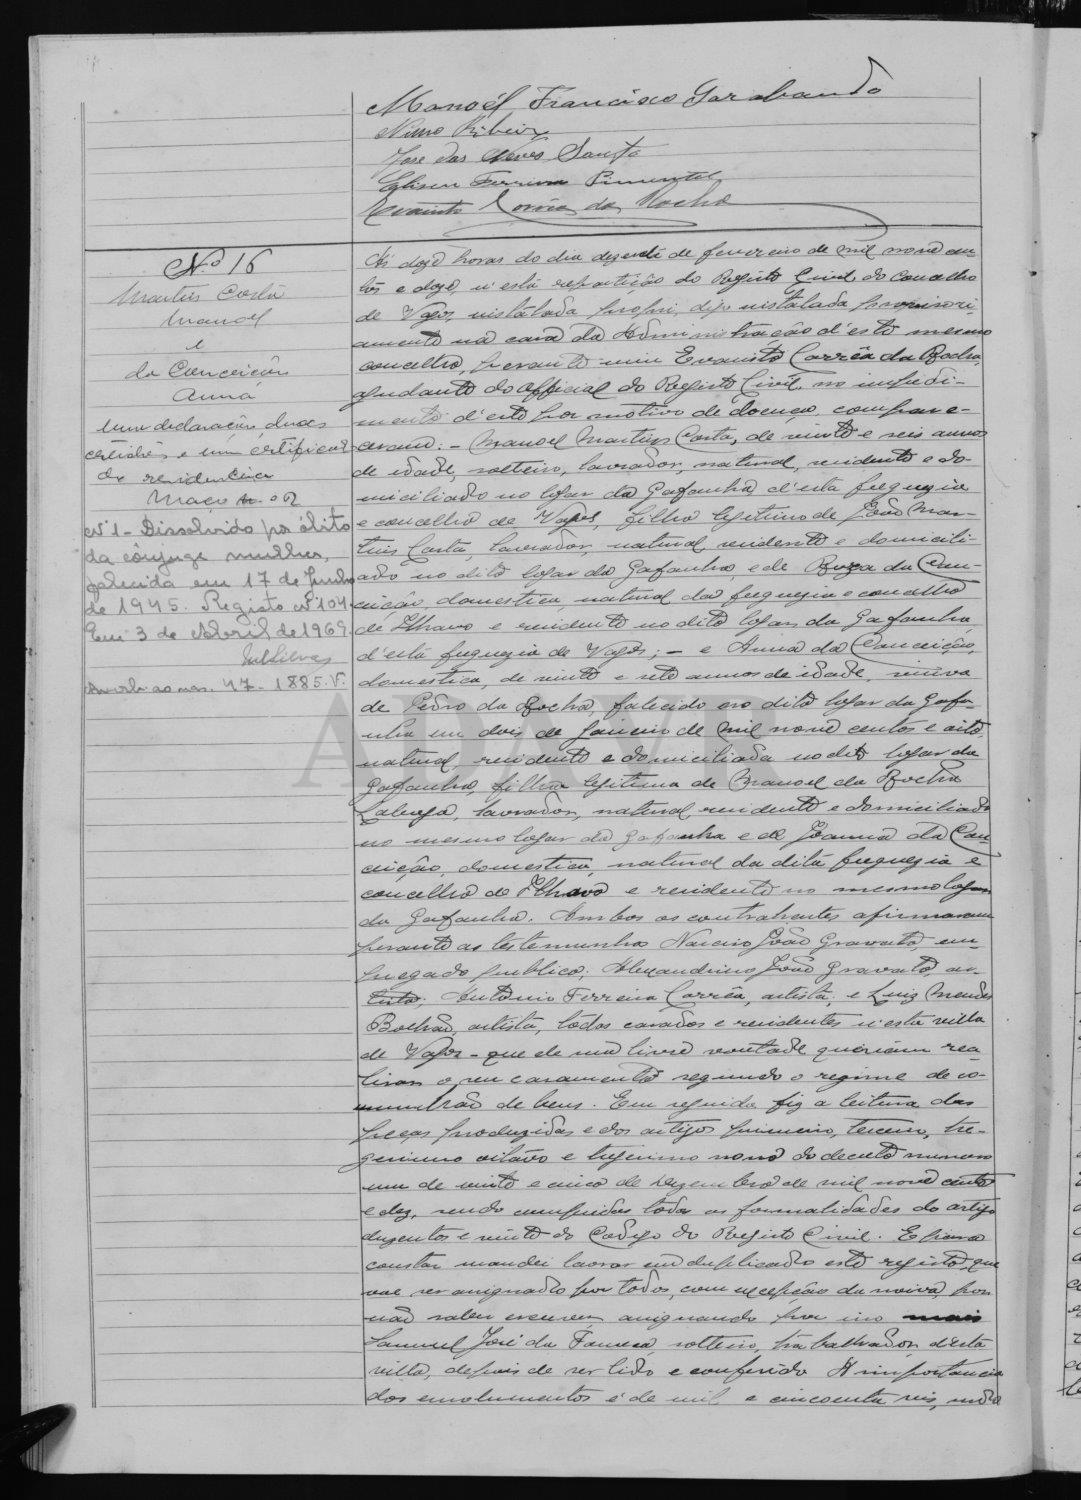 Manoél Francisco Sarabando
Nuno Ribeiro
José das Neves Santos
Eliseu Ferreira Pimentel
Evaristo Corrêa da Rocha
Nº 16
Martins Costa
Manoel
e
da Conceição
Anna
uma declaração, duas
certidões e um certificado
de residencia
Maço nº 2
Nº 1 - Dissolvido por óbito
da cônjuge mulher,
falecida em 17 de Junho
de 1945. Registo nº 104.
Em 3 de Abril de 1969.
47 - 1885. V.
Ás doze horas do dia de fevereiro de mil nove cen-
tos e doze, n'esta repartição do Registo Civil do concelho
de Vagos, instalada digo instalada provisori-
amente na casa da Administração d'este mesmo
concelho, perante mim Evaristo Corrêa da Rocha,
ajudante do official do Registo Civil, no impedi-
mento d'este por motivo de doença, compare-
ceram: - Manoel Martins Costa, de vinte e seis annos
de idade, solteiro, lavrador, natural, residente e do-
miciliado no logar da Gafanha d'esta freguezia
e concelho de Vagos, filho legitimo de João Mar-
tins Costa, lavrador, natural, residente e domicili-
ado no dito logar da Gafanha, e de Roza da Con-
ceição, domestica, natural da freguezia e concelho
de Ilhavo e residente no dito logar da Gafanha
d'esta freguezia de Vagos; - e Anna da Conceição,
domestica, de vinte e sete annos de idade, viuva
de Pedro da Rocha, falecido no dito logar da Gafa-
nha em dois de Janeiro de mil nove centos e oito,
natural, residente e domiciliada no dito logar da
Gafanha, filha legitima de Manoel da Rocha
lavrador, natural, residente e domiciliado
no mesmo logar da Gafanha e de Joanna da Con-
ceição, domestica, natural da dita freguezia e
concelho de Ilhavo e residente no mesmo logar
da Gafanha. Ambos os contrahentes afirmaram
perante as testemunhas Narciso João Gravato, em-
pregado publico; Alexandrino João Gravato, ar-
tista; Antonio Ferreira Corrêa, artista; e Luiz Mendes
Bolhão, artista, todos casados e residentes n'esta villa
de Vagos - que de sua livre vontade queriam rea-
lisar o seu casamento segundo o regime de co-
munhão de bens. Em seguida fiz a leitura das
peças produzidas e dos artigos primeiro, terceiro, tri-
gessimo oitavo e trigessimo nono do decreto numero
um de vinte e cinco de Dezembro de mil nove centos
e dez, sendo cumpridas todas as formalidades do artigo
duzentos e vinte do Codigo do Registo Civil. E para
constar mandei lavrar em duplicado este registo, que
vae ser assignado por todos, com excepção da noiva, por
não saber escrever, assignando por isso
Samuel José da Fonseca, solteiro, trabalhador, d'esta
villa, depois de ser lido e conferido. A importancia
dos emolumentos é de mil e cincoenta reis,
ADAVR